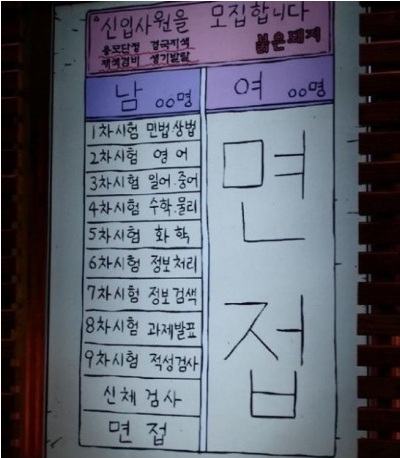 "신입사원을 모집합니다
용모단정 경국지색
재색겸비 생기발랄
붉은돼지
남 00명
여 00명
1차시험 민법.상법
2차시험 영어
3차시험 일어.중어
4차시험 수학.물리
5차시험 화학
6차시험 정보처리
7차시험 정보검색
8차시험 과제발표
9차시험 적성검사
신체검사
면접
면
접